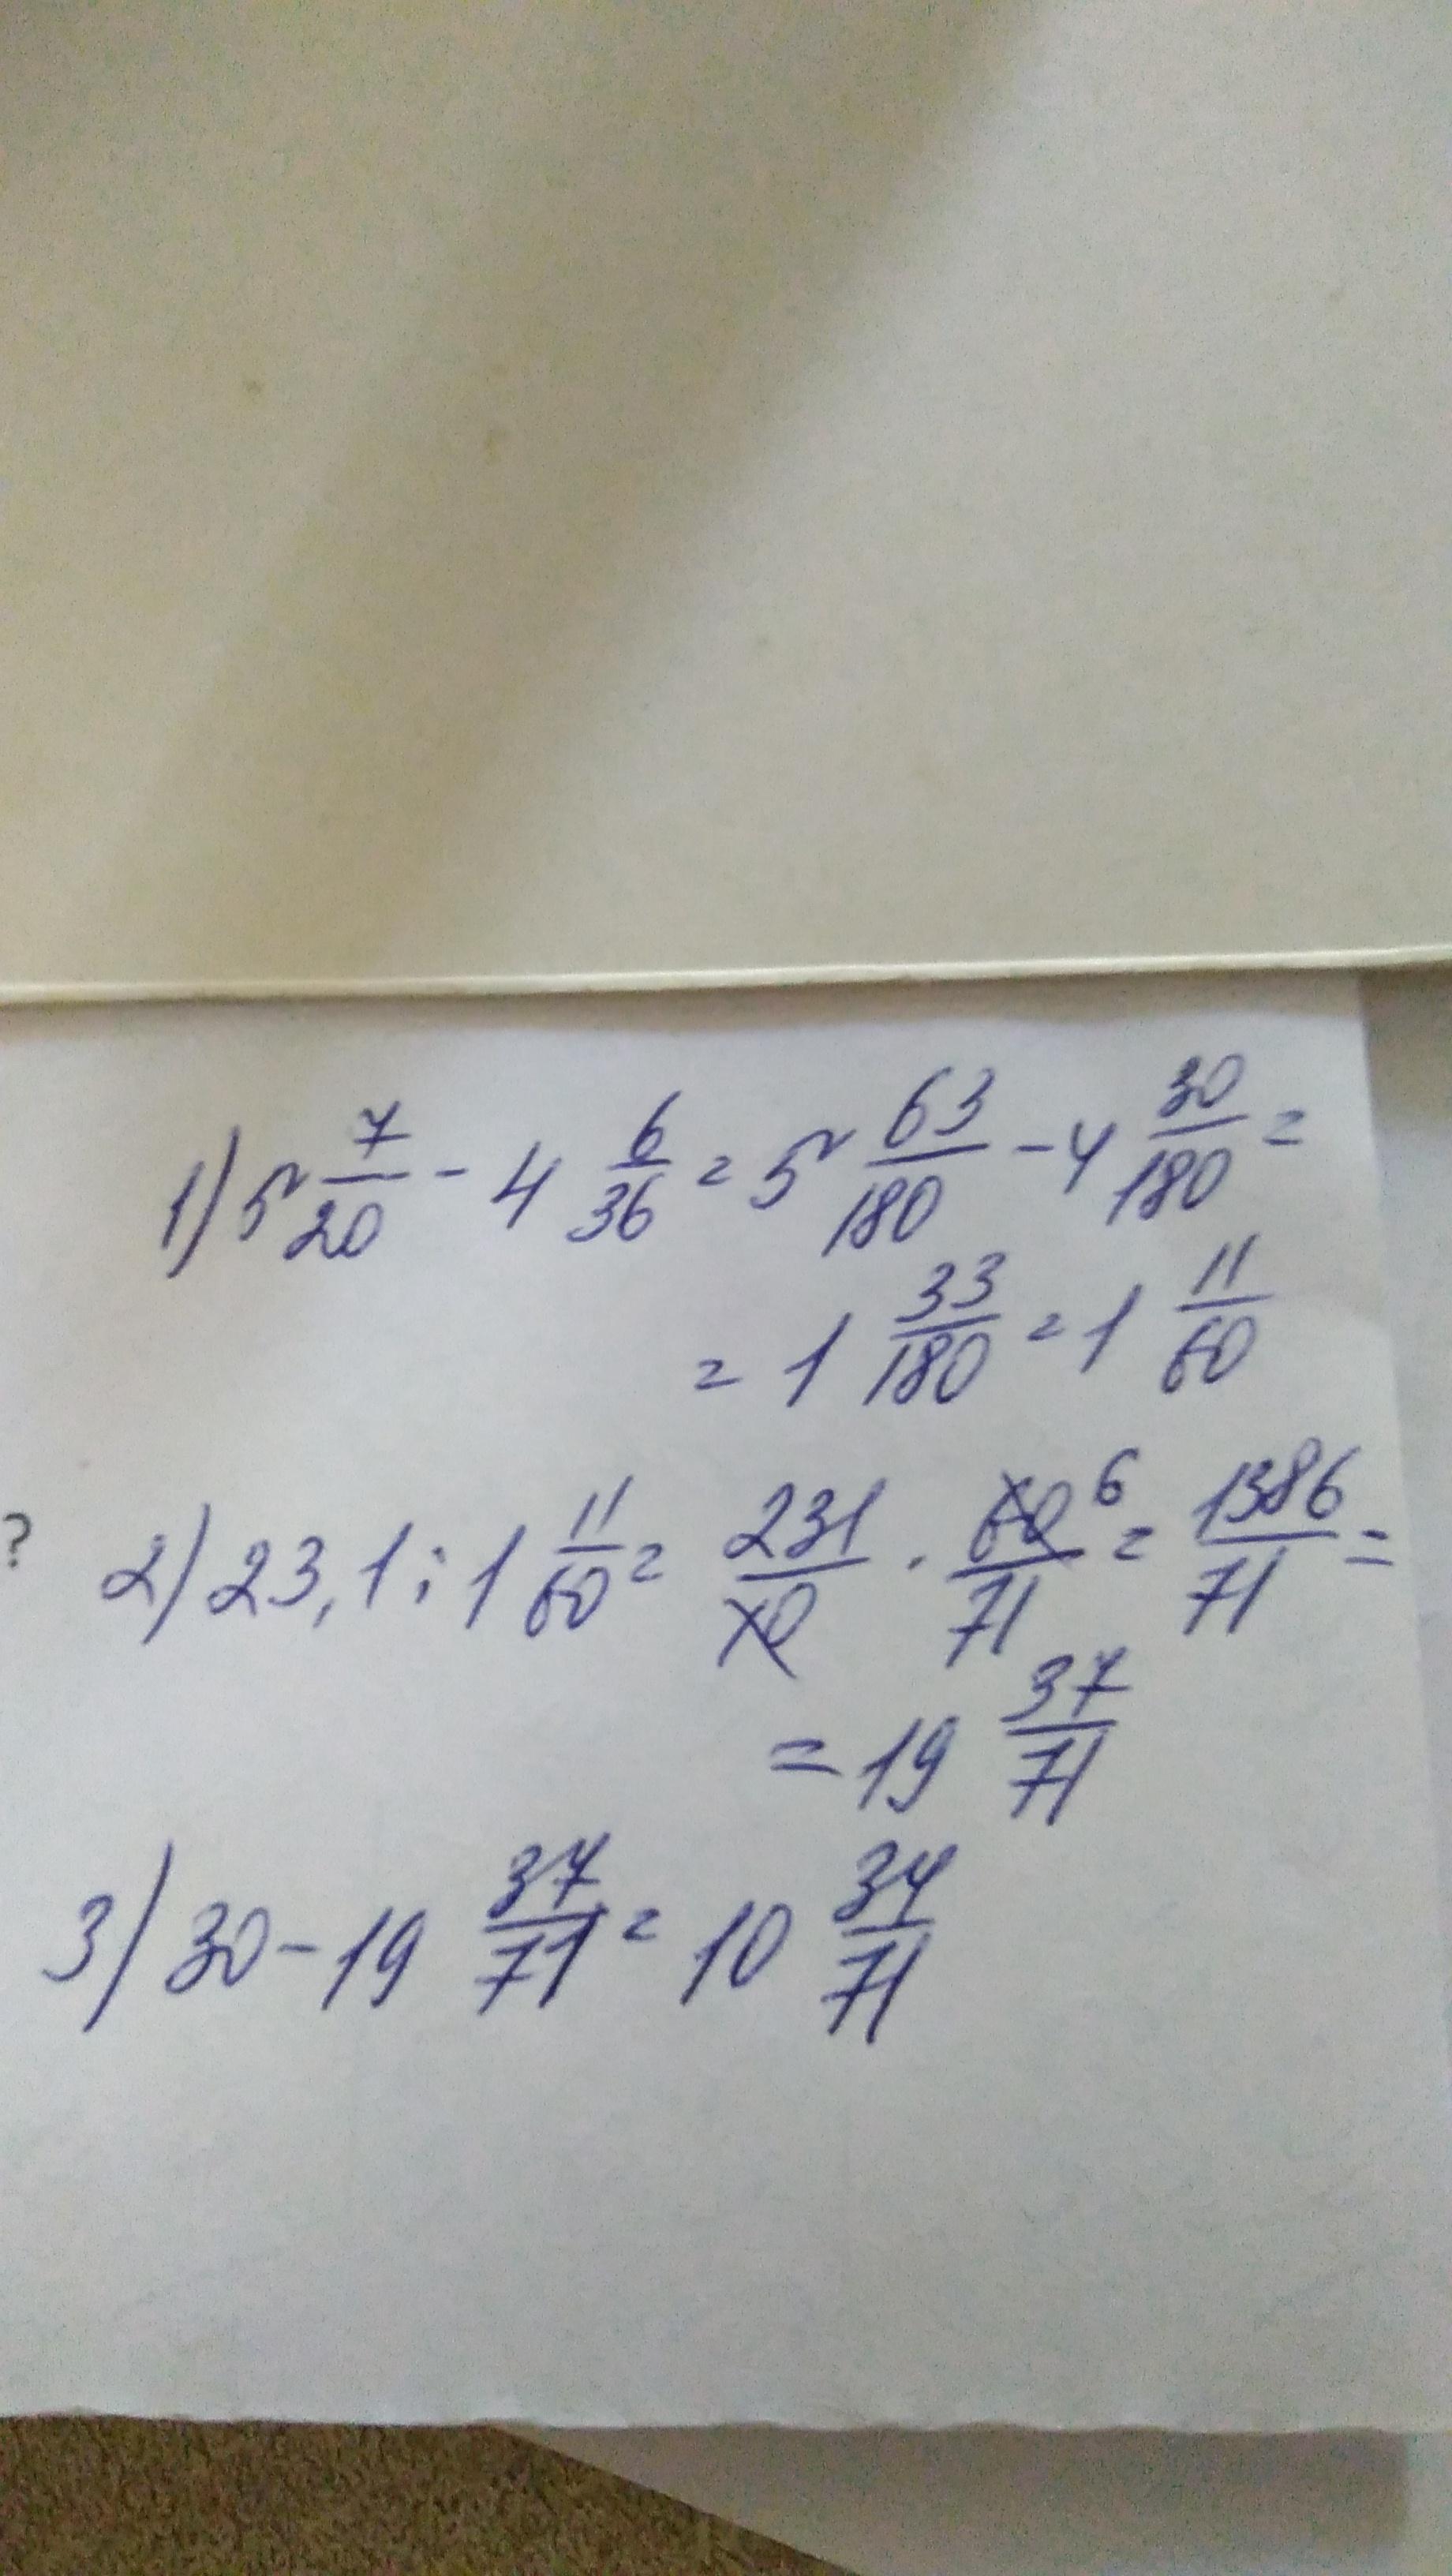 1) 5 7/20 - 4 6/36 = 5 63/180 - 4 30/180 =
= 1 33/180 = 1 11/60
? 2) 23,1 : 1 11/60 = 231/10 · 60/71 6 = 1386/71 =
= 19 37/71
3) 30 - 19 37/71 = 10 34/71